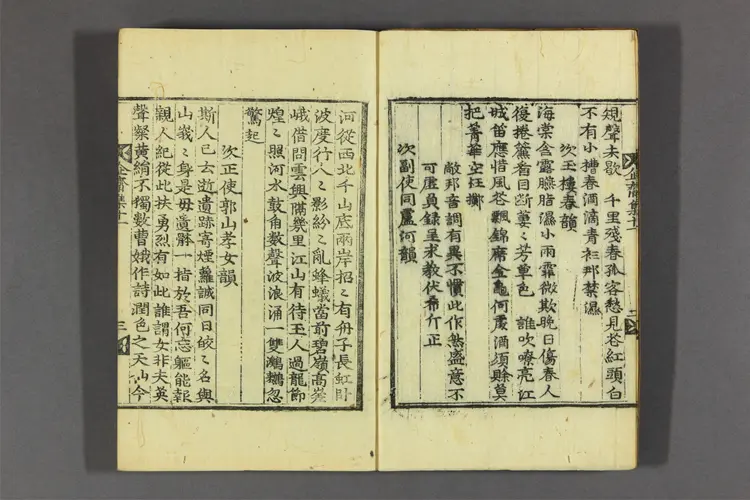 規聲未歇 千里殘春孤客愁見花紅頭白
不有小槽春酒滴青衫那禁濕
次玉樓春韻
海棠含露臙脂濕小雨霏微欺晚日傷春人
復捲簾看目斷萋〻芳草色 誰吹嘹亮江
城笛應惜風花飄錦席金龜何處酒須賖莫
把菁華空擲
敝邦音調有異不慣此作然盛意不
可虛負錄呈求教伏希斤正
次副使同盧河韻
企齋集十一 二
河從西北千山底兩岸招〻有舟子長虹卧
波度行人〻影紛〻亂蜂蟻當前碧嶺高嵳
峨借問雲興隔幾里江山有待玉人過龍節
煌〻照河水鼓角數聲波浪涌一雙鸂鶒忽
驚起
次正使郭山孝女韻
斯人已去逝遺跡寄煙蘿誠同日皎〻名與
山峩〻身是毋遺骸一指於吾何忘軀能報
親人紀從此扶勇烈有如此誰謂女非夫英
聲粲黃絹不獨數曹娥作詩潤色之天山今
企齋集十一 三